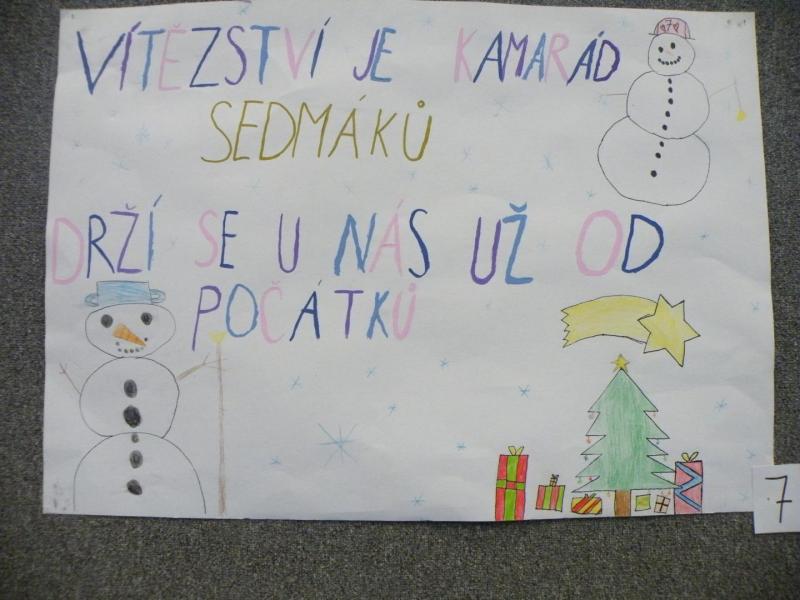 VÍTĚZSTVÍ JE KAMARÁD
SEDMÁKŮ
DRŽÍ SE U NÁS UŽ OD
POČÁTKŮ
7
7